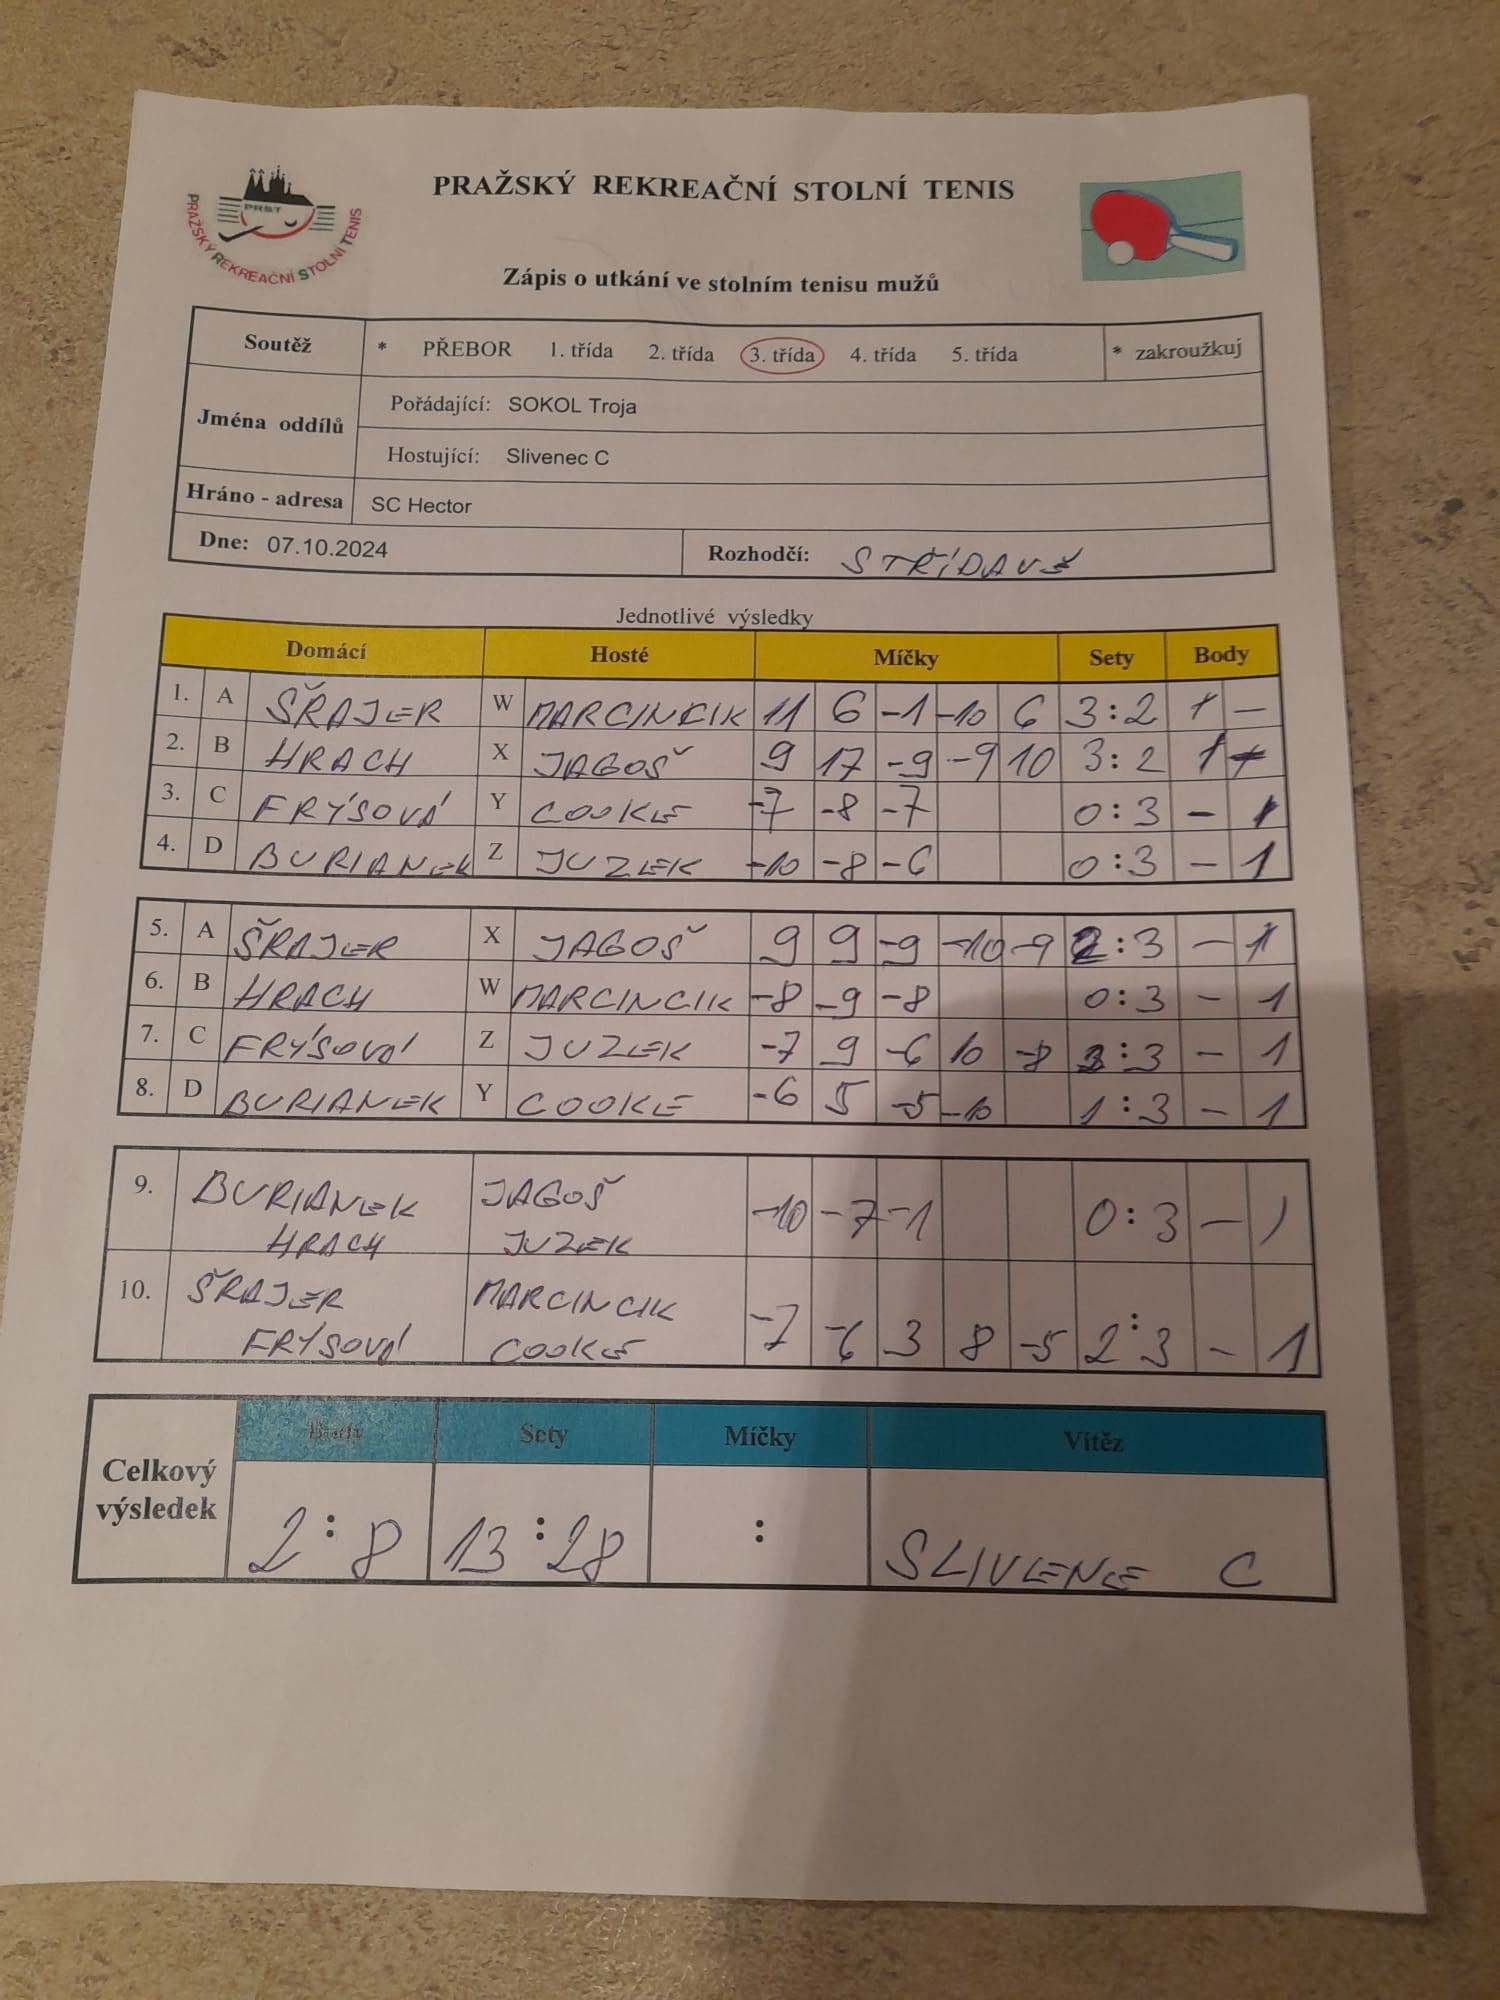 PRAŽSKÝ REKREAČNÍ STOLNÍ TENIS
PRST
PRAŽSKÝ REKREAČNÍ STOLNÍ TENIS
Zápis o utkání ve stolním tenisu mužů
Soutěž * PŘEBOR 1. třída 2. třída 3. třída 4. třída 5. třída * zakroužkuj
Jména oddílů
Pořádající: SOKOL Troja
Hostující: Slivenec C
Hráno - adresa SC Hector
Dne: 07.10.2024 Rozhodčí: STŘÍDAVĚ
Jednotlivé výsledky
Domácí Hosté Míčky Sety Body
1. A ŠRAJER W MARCINCIK 11 6 -1 -10 6 3:2 1 -
2. B HRACH X JAGOŠ 9 17 -9 -9 10 3:2 1 -
3. C FRÝSOVÁ Y COOKE -7 -8 -7 0:3 - 1
4. D BURIANEK Z JUZEK -10 -8 -6 0:3 - 1
5. A ŠRAJER X JAGOŠ 9 9 -9 -10 -9 2:3 - 1
6. B HRACH W MARCINCIK -8 -9 -8 0:3 - 1
7. C FRÝSOVÁ Z JUZEK -7 9 -6 10 -8 :3 - 1
8. D BURIANEK Y COOKE -6 5 -5 -10 1:3 - 1
9. BURIANEK JAGOŠ -10 -7 -1 0:3 - 1
HRACH JUZEK
10. ŠRAJER MARCINCIK -7 -6 3 8 -5 2:3 - 1
FRÝSOVÁ COOKE
Celkový výsledek
Body Sety Míčky Vítěz
2:8 13:28 : SLIVENE C